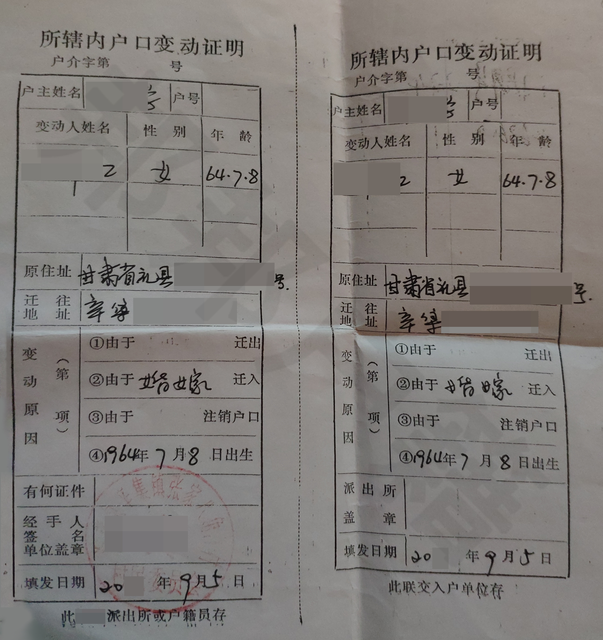 所辖内户口变动证明
户介字第 号
户主姓名 户号
变动人姓名 性别 年龄
女 64.7.8
原住址 甘肃省礼县 号.
迁往地址
变动原因(第 项)
①由于 迁出
②由于 婚嫁 迁入
③由于 注销户口
④1964年7月8日出生
有何证件
经手人
签名
单位盖章
填发日期 20 年9月5日
此 派出所或户籍员存
所辖内户口变动证明
户介字第 号
户主姓名 户号
变动人姓名 性别 年龄
女 64.7.8
原住址 甘肃省礼县 号.
迁往地址
变动原因(第 项)
①由于 迁出
②由于 婚嫁 迁入
③由于 注销户口
④1964年7月8日出生
派出所
盖章
填发日期 20 年9月5日
此联交入户单位存